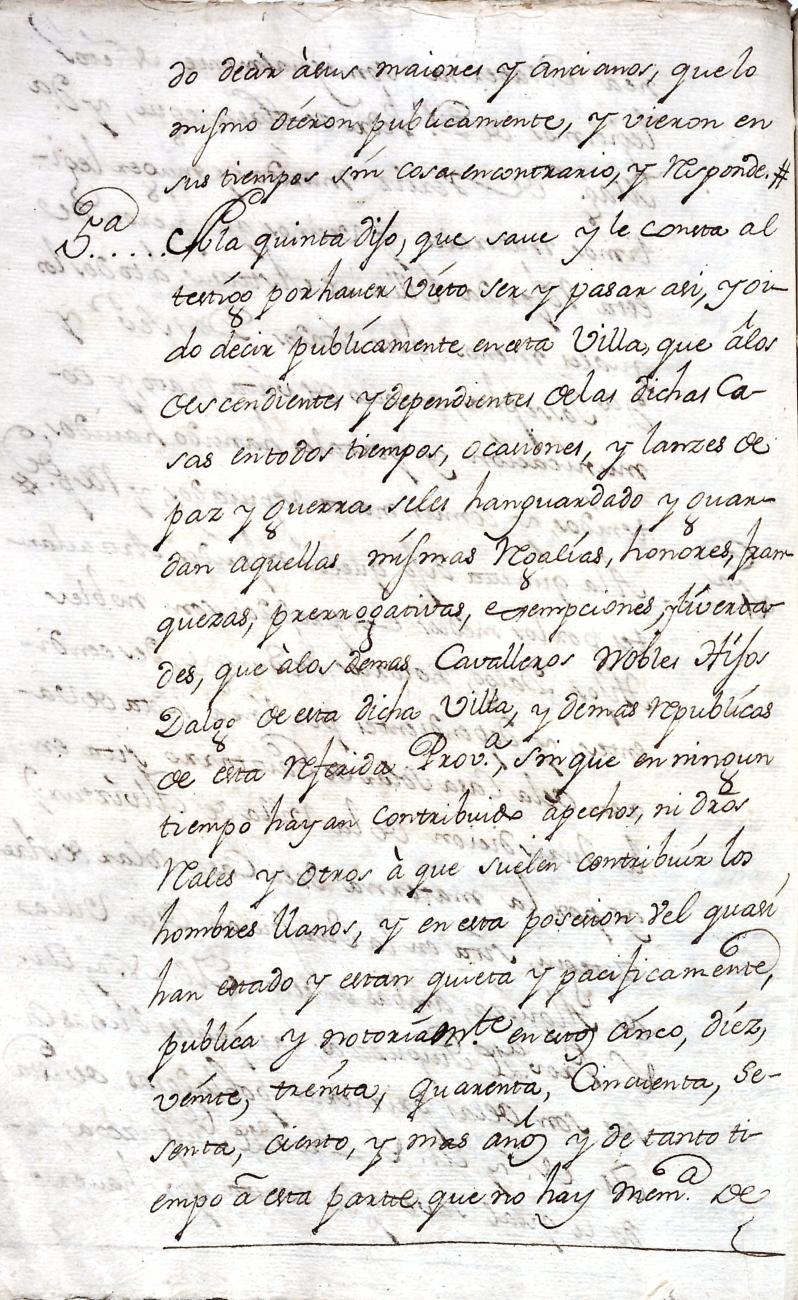 do decir à sus maiores y ancianos, que lo
mismo oieron publicamente, y vieron en
sus tiempos sin cosa encontrario, y responde.#
5.ª ..... A la quinta dijo, que save y le consta al
testigo por haver visto ser y pasar asi, y oi-
do decir publicamente en esta Villa, que â los
descendientes y dependientes de las dichas Ca-
sas en todos tiempos, ocasiones, y lanzes de
paz y guerra se les han guardado y guar-
dan aquellas mismas regalías, honores, fran-
quezas, prerrogativas, exempciones, y liverta-
des, que à los demas Cavalleros Nobles Hijos
Dalgo de esta dicha Villa, y demas republicas
de esta referida Prov.ª, sin que en ningun
tiempo hayan contribuido à pechos, ni dros
reales y otros à que suelen contribuír los
hombres llanos, y en esta posesion vel quasi
han estado y estan quieta y pacificamente,
publica y notoriam.te en estos cinco, diéz,
veinte, treinta, quarenta, Cincuenta, se-
senta, ciento, y mas años y de tanto ti-
empo â esta partte que no hay mem.ª de